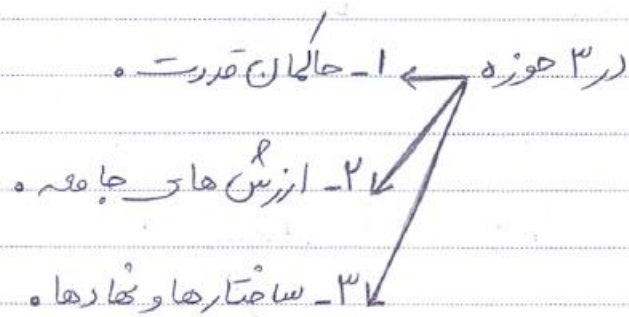 در ۳ حوزه ۱- حاکمان قدرت.
۲- ارزش های جامعه.
۳- ساختارها و نهادها.